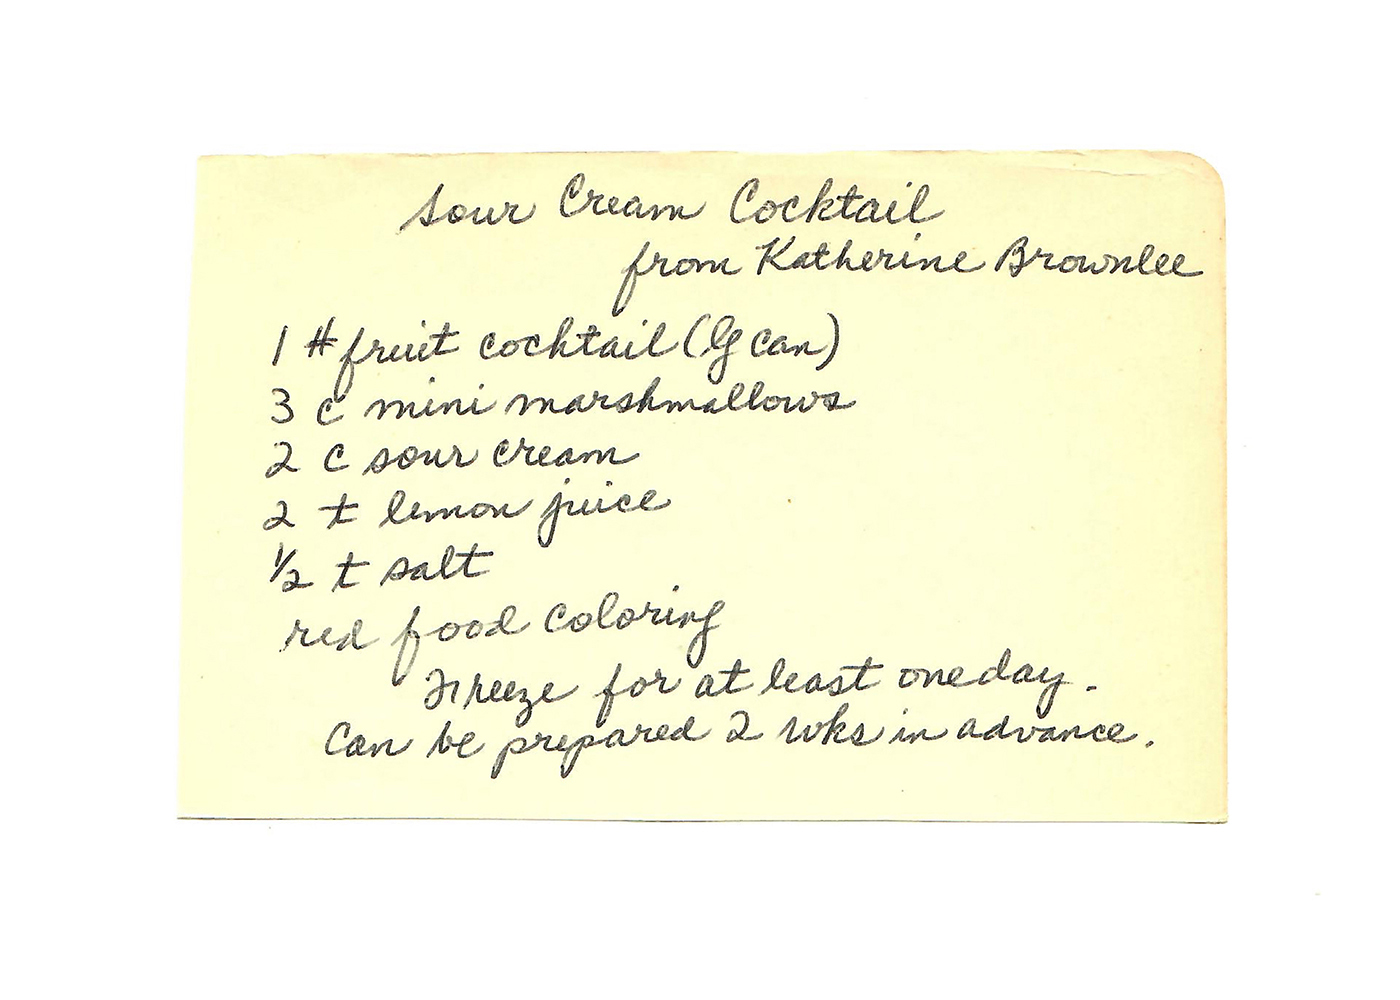 Sour Cream Cocktail
from Katherine Brownlee
1 # fruit cocktail (lg can)
3 c mini marshmallows
2 c sour cream
2 t lemon juice
1/2 t salt
red food coloring
Freeze for at least one day.
Can be prepared 2 wks in advance.